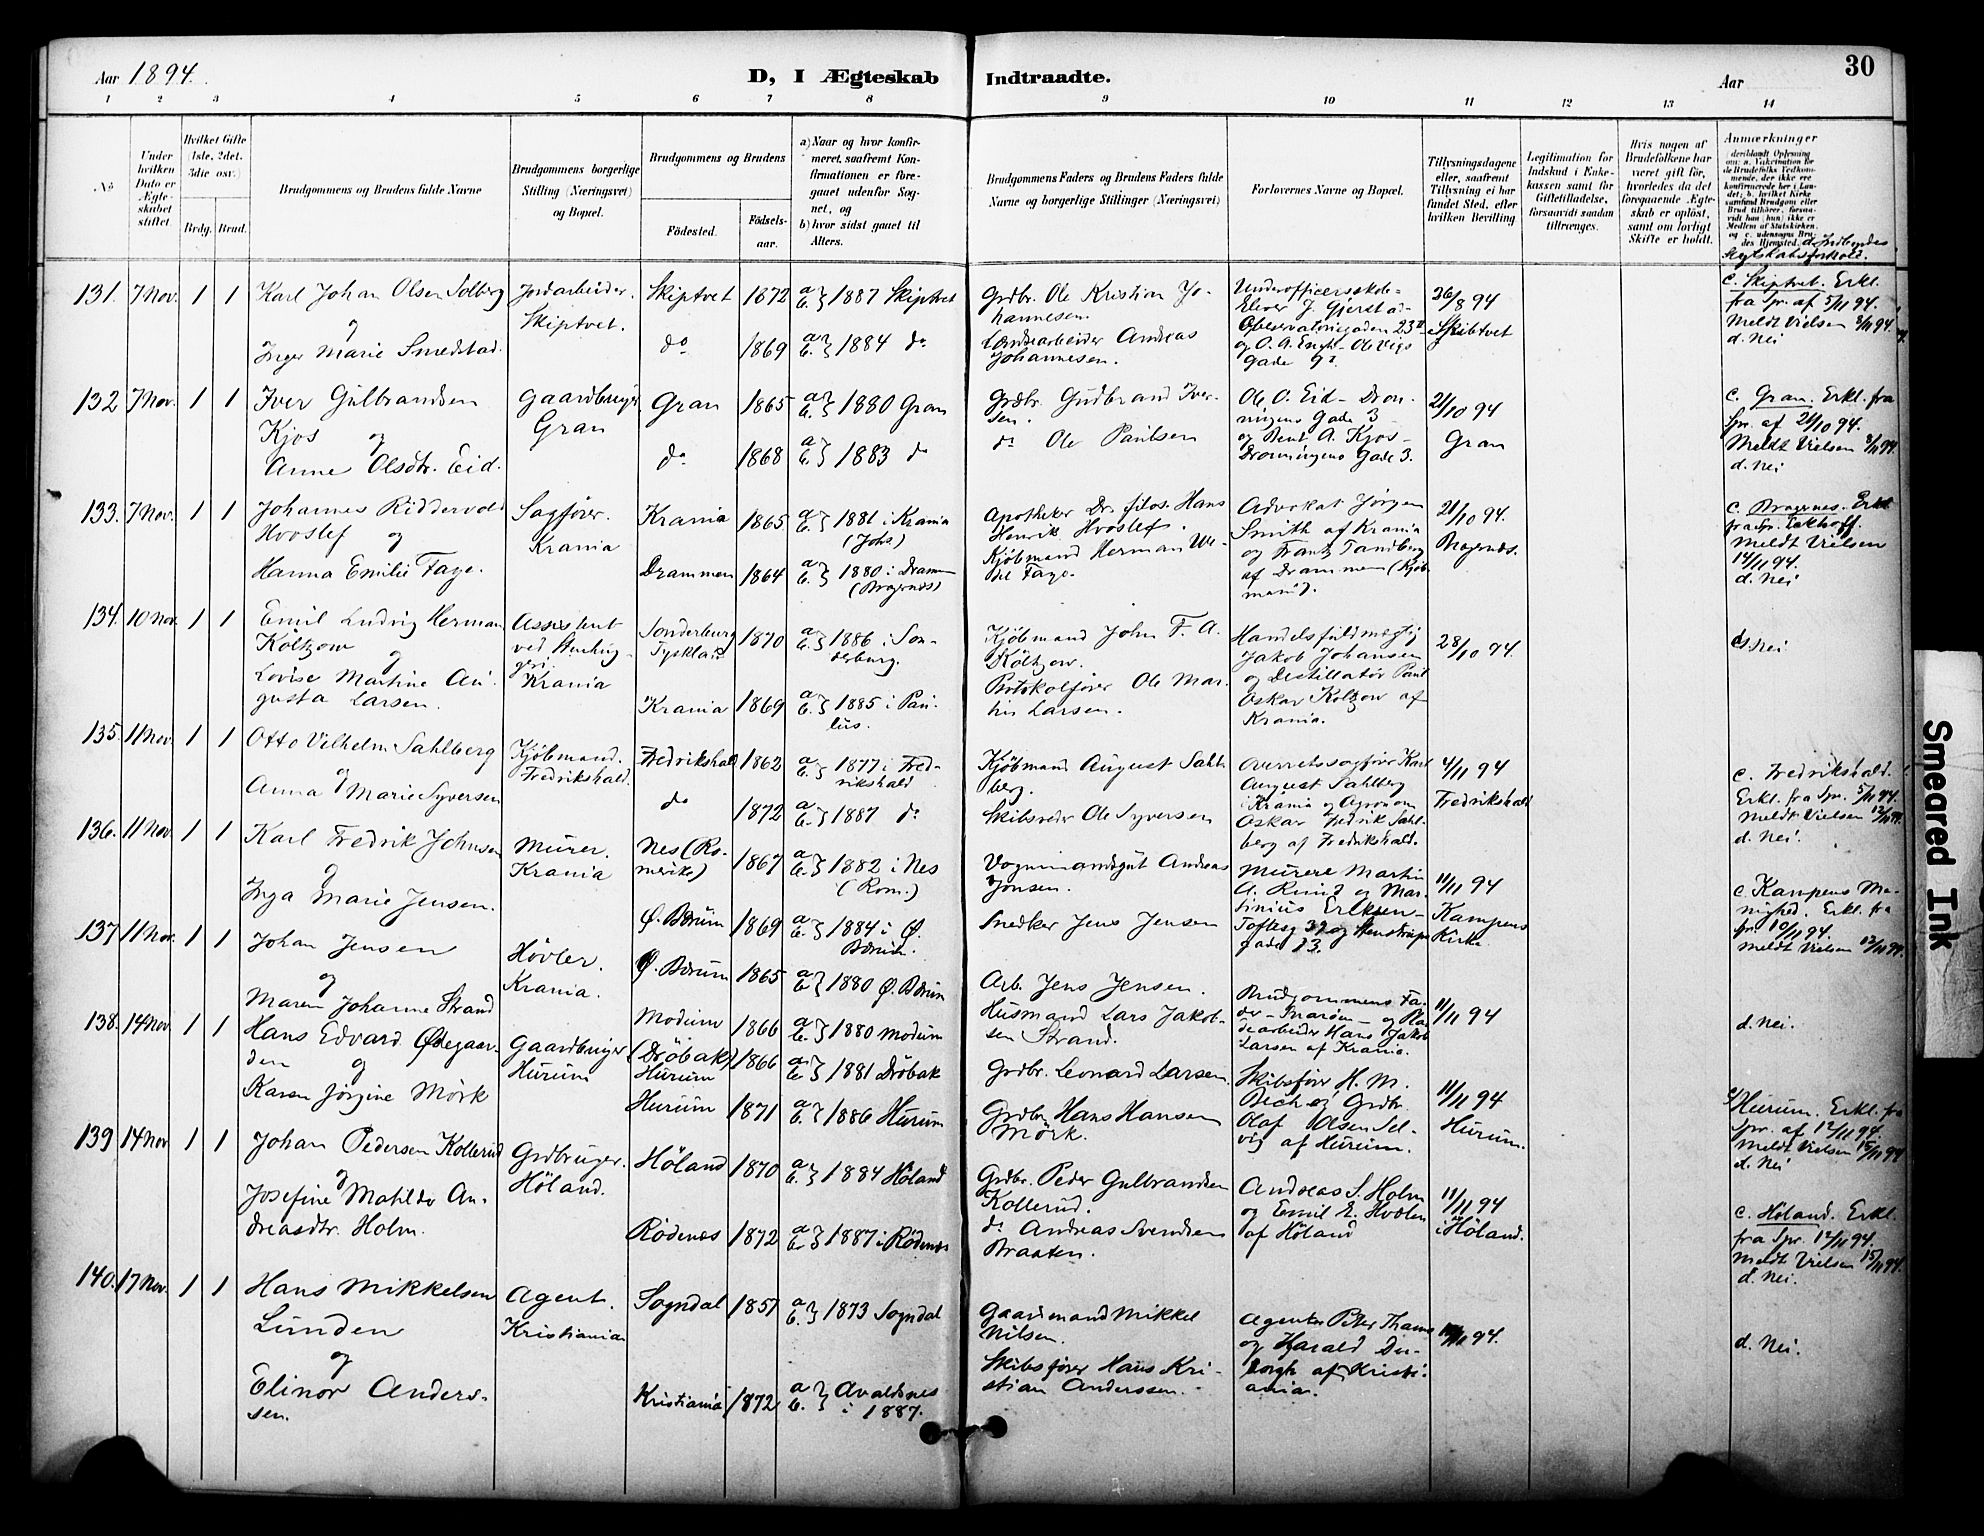 Aar 1894.
D, I Ægteskab Indtraadte.
Aar
30
1 2 3 4 5 6 7 8 9 10 11 12 13 14
No
Under hvilken Dato er Ægteskabet stiftet
Hvilket Gifte (1ste, 2det, 3die osv.)
Brdg. Brud.
Brudgommens og Brudens fulde Navne
Brudgommens borgerlige Stilling (Næringsvei) og Bopæl.
Brudgommens og Brudens
Fødested.
Fødselsaar.
a) Naar og hvor konfirmeret, saafremt Konfirmationen er foregaaet udenfor Sognet, og
b) hvor sidst gaaet til Alters.
Brudgommens Faders og Brudens Faders fulde Navne og borgerlige Stillinger (Næringsvei)
Forlovernes Navne og Bopæl.
Tillysningsdagene eller, saafremt Tillysning ei har fundet Sted, efter hvilken Bevilling
Legitimation for Indskud i Enkekassen samt for Giftetilladelse, forsaavidt saadan tiltrænges.
Hvis nogen af Brudefolkene har været gift før, hvorledes da det foregaaende Ægteskab er opløst, samt om lovligt Skifte er holdt.
Anmærkninger
131. 7 Nov. 1 1
Karl Johan Olsen Solberg
og
Inger Marie Smedstad.
Jordarbeider.
Skiptvet.
Skiptvet 1872 a b } 1887 Skiptvet
do 1869 a b } 1884 do
Grdbr. Ole Kristian Johannesen.
Landarbeider Andreas Johannesen.
26/8 94
i Skibtvet
c. Skiptvet. Erkl.
fra Spr. af 5/11 94.
Meldt Vielsen 8/11 94.
d. Nei
132 7 Nov. 1 1
Iver Gulbrandsen
Kjos og
Anne Olsdtr. Eid.
Gaardbruger
Gran
Gran 1865 a b } 1880 Gran
do 1868 a b } 1883 do
Grdbr. Gudbrand Iversen.
do Ole Paulsen
Ole O. Eid - Dronningens Gade 3
og Bent A. Kjos -
Dronningens Gade 3.
21/10 94
Gran
c. Gran. Erkl. fra
Spr. af 21/10 94.
Meldt Vielsen 8/11 94.
d. Nei
133. 7 Nov. 1 1
Johannes Riddervold
Hvoslef og
Hanna Emilie Faye.
Sagfører.
Krania
Krania 1865 a b } 1881 i Krania
(Johs)
Drammen 1864 a b } 1880 i Drammen
(Bragernæs)
Apotheker Dr. filos. Hans
Henrik Hvoslef.
Kjøbmand Herman Wedel Faye.
Advokat Jørgen
Smith af Krania
og Frantz Tandberg
af Drammen (Kjøbmand).
21/10 94.
Bragernæs.
c. Bragernes. Erkl.
fra Spr. Eekhoff.
Meldt Vielsen
14/11 94.
d. Nei
134. 10 Nov. 1 1
Emil Ludvig Herman
Költzow
og
Lovise Martine Augusta Larsen.
Assistent
Krania
Sonderburg
Tyskland 1870 a b } 1886 i Sonderburg.
Krania 1869 a b } 1885 i Paulus.
Kjøbmand John F. A.
Költzow.
Protokolfører Ole Martin Larsen.
Handelsfuldmægtig
Jakob Johansen
og Destillatør Paul
Oskar Költzow af
Krania.
28/10 94.
d. Nei
135. 11 Nov. 1 1
Otto Vilhelm Sahlberg
og
Anna Marie Syversen
Kjøbmand.
Fredrikshald.
Fredrikshald 1862 a b } 1877 i Fredrikshald
do 1872 a b } 1887 do
Kjøbmand August Sahlberg.
Skibsreder Ole Syversen
Overretssagfør Karl
August Sahlberg
i Krania og Agronom
Oskar Fredrik Sahlberg af Fredrikshald.
4/11 94
Fredrikshald
c. Fredrikshald.
Erkl. fra Spr. 5/11 94.
Meldt Vielsen 12/11 94.
d. Nei.
136. 11 Nov. 1 1
Karl Fredrik Johnsen
og
Inga Marie Jensen.
Murer.
Krania
Nes (Romerike) 1867 a b } 1882 i Nes
(Rom.)
Ø. Bærum 1869 a b } 1884 i Ø.
Bærum.
Vognmandsgut Andreas
Jonsen.
Snedker Jens Jensen
Murere Martin
A. Rund og Martinius Eriksen -
11/11 94
Kampens
Kirke
c. Kampens Menighed. Erkl. fra
Spr. 10/11 94.
Meldt Vielsen 12/11 94.
137 11 Nov. 1 1
Johan Jensen
og
Maren Johanne Strand
Høvler.
Krania.
Ø. Bærum 1865 a b } 1880 Ø. Bærum
Modum 1866 a b } 1880 Modum
Arb. Jens Jensen.
Husmand Lars Jakobsen Strand.
Brudgommens Fader - Snarøen - og Pladsarbeider Hans Jakob
Larsen af Krania.
11/11 94
d. Nei.
138. 14 Nov. 1 1
Hans Edvard Ødegaarden og
Karen Jørgine Mörk
Gaardbruger
Hurum
(Dröbak)
Hurum 1866 a b } 1881 Dröbak
Hurum 1871 a b } 1886 Hurum
Grdbr. Leonard Larsen.
Grdbr. Hans Hansen
Mörk.
Skibsfører H. M.
Bech og Grdbr.
Olaf Olsen Selvig af Hurum.
11/11 94
Hurum.
c. Hurum. Erkl. fra
Spr. af 12/11 94.
Meldt Vielsen 15/11 94
d. Nei
139 14 Nov 1 1
Johan Pedersen Kollerud
og
Josefine Matilde Andreasdtr. Holm.
Grdbruger.
Höland.
Höland 1870 a b } 1884 Höland
Rödenæs 1872 a b } 1887 i Rödenæs
Grdbr. Peder Gulbrandsen
Kollerud.
do Andreas Svendsen
Braaten.
Andreas S. Holm
og Emil E. Hvolen
af Höland
11/11 94
i Höland.
c. Höland. Erkl.
fra Spr. 12/11 94.
Meldt Vielsen 15/11 94.
d. Nei.
140. 17 Nov. 1 1
Hans Mikkelsen
Lunden
og
Elinor Anderssen.
Agent.
Kristiania
Sogndal 1857 a b } 1873 Sogndal
Kristiania 1872 a b } Avaldsnes
i 1887.
Gaardmand Mikkel
Nilsen.
Skibsfører Hans Kristian Anderssen.
Agenter Peter Thams
og Harald
af Kristiania.
/11 94.
d. Nei.
Smeared Ink